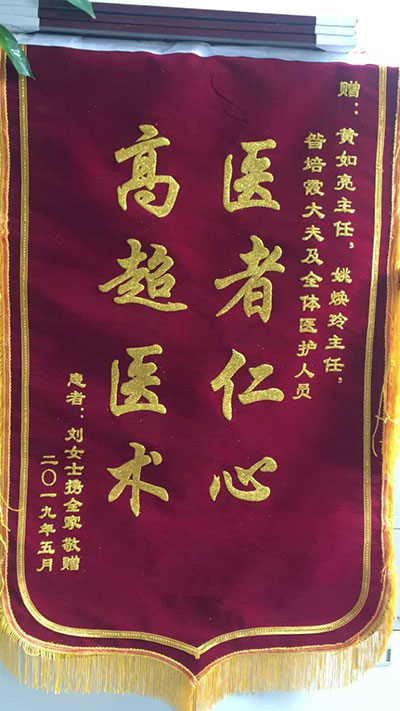 赠：黄如亮主任，姚焕玲主任，
昝培霞大夫及全体医护人员
医者仁心
高超医术
患者：刘女士携全家敬赠
二〇一九年五月